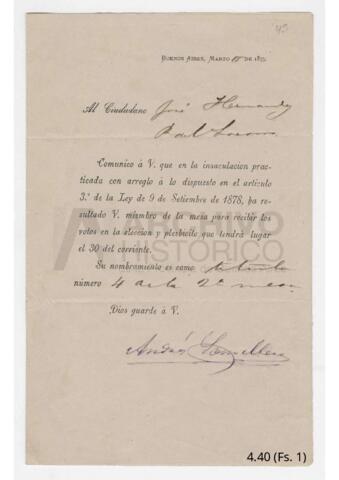 49
BUENOS AIRES, MARZO DE 187
Al Ciudadano José Hernandez
Comunico á V. que en la insaculacion prac-
ticada con arreglo á lo dispuesto en el artículo
3.º de la Ley de 9 de Setiembre de 1878, ha re-
sultado V. miembro de la mesa para recibir los
votos en la eleccion y plebicito que tendrá lugar
el 30 del corriente.
Su nombramiento es como titular
número 4 de la 2ª mesa
Dios guarde á V.
Andrés Somellera
ARCHIVO
HISTÓRICO
4.40 (Fs. 1)